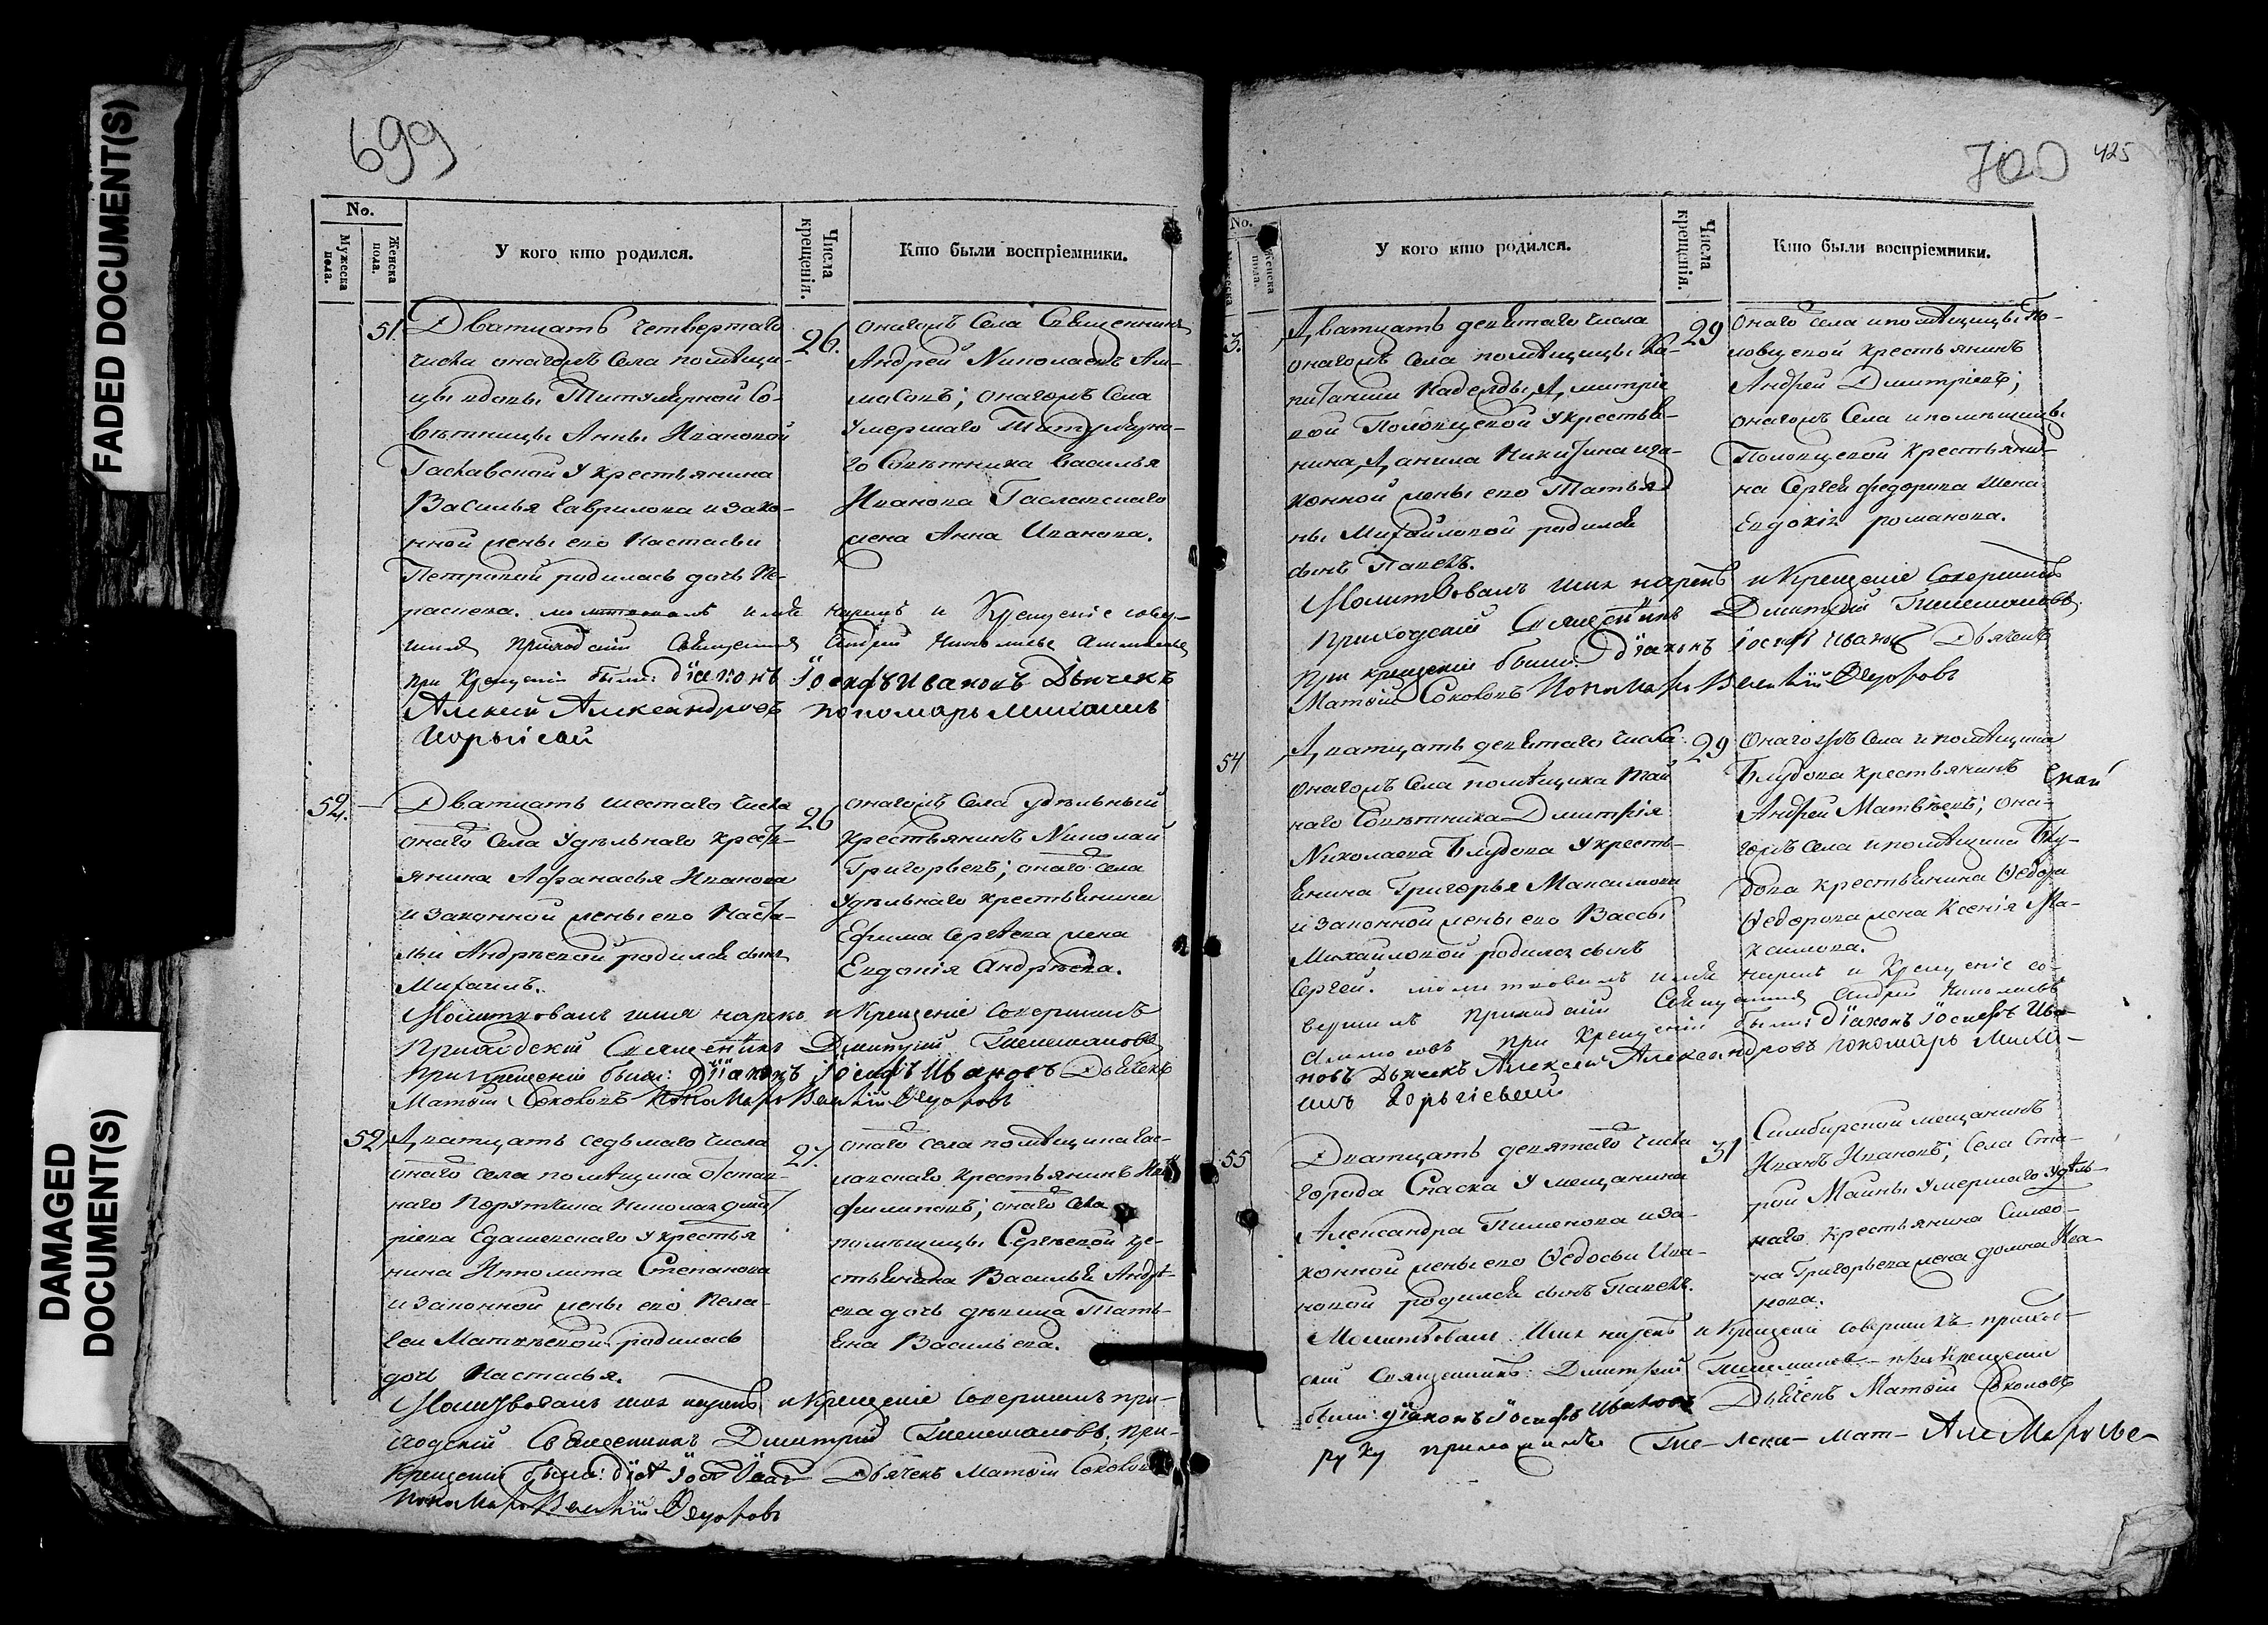 FADED DOCUMENT(S)
DAMAGED
DOCUMENT(S)
699
No.
Мужеска пола.
Женска пола.
У кого кто родился.
Числа крещенія.
Кто были воспріемники.
51.
Дватцать четвертаго
числа онагожъ села помѣщи-
цы вдовы Титулярной Со-
вѣтницы Анны Ивановой
у крестьянина
Василья Гаврилова и зако-
нной жены его Настасьи
Петровой родилась дочь Па-
раскева. молитвовалъ имя нарекъ и Крещеніе совер-
шилъ приходскій Священникъ Андрей Николаевъ
при Крещеніи были: діаконъ Іосифъ Ивановъ Дьячекъ
Алексей Александровъ пономарь Михаилъ
26.
онагожъ села Священникъ
Андрей Николаевъ Ал-
масовъ; онагожъ села
умершаго Титулярна-
го Совѣтника Василья
Иванова
жена Анна Иванова.
52.
Дватцать шестаго числа
онаго села удѣльнаго кресть-
янина Афанасья Иванова
и законной жены его Наста-
сьи Андрѣевой родился сынъ
Михаилъ.
Молитвовалъ имя нарекъ и Крещеніе совершилъ
приходскій Священникъ Дмитрій
при крещеніи были: діаконъ Іосифъ Ивановъ Дьячекъ
Матѳій Соколовъ Пономарь Ѳедоровъ
26
онагожъ села удѣльный
крестьянинъ Николай
Григорьевъ; онаго села
удѣльнаго крестьянина
Ефима Сергѣева жена
Евдокія Андрѣева.
52
Дватцать седьмаго числа
онаго села помѣщика отстав-
наго Порутчика Николая Дмит
ріева у крестья
нина Ипполита Степанова
и законной жены его Пела-
геи Матвѣевой родилась
дочь Настасья.
Молитвовалъ имя нарекъ и Крещеніе совершилъ при-
ходскій Священникъ Дмитрій при-
Крещеніи были: Дьячекъ Матѳій Соколовъ
Пономарь Ѳедоровъ
27.
онаго села помѣщика
крестьянинъ
Филиповъ; онаго села
помѣщицы Сергѣевой кре-
стьянина Василья Андрѣ-
ева дочь дѣвица Тать-
яна Васильева.
700
425
No.
Женска пола.
У кого кто родился.
Числа крещенія.
Кто были воспріемники.
3.
Дватцать девятаго числа
онагожъ села помѣщицы Ка-
питанши Надежды Дмитріе
вой Половцевой у крестья-
нина Данила Никитина и за-
конной жены его Татья
ны Михайловой родился
сынъ Павелъ.
Молитвовалъ имя нарекъ и Крещеніе совершилъ
приходскій Священникъ Дмитрій
при крещеніи были: діаконъ Іосифъ Ивановъ Дьячекъ
Матѳій Соколовъ Пономарь Ѳедоровъ
29
Онаго села и помѣщицы По-
ловцевой крестьянинъ
Андрей Дмитріевъ;
онагожъ села и помѣщицы
Половцевой крестьяни-
на Сергея Федорова жена
Евдокія Романова.
54
Дватцать девятаго числа
онагожъ села помѣщика Тай
наго Совѣтника Дмитрія
Николаева Блудова у кресть-
янина Григорья Максимова
и законной жены его Вассы
Михайловой родился сынъ
Сергей. молитвовалъ имя нарекъ и Крещеніе со-
вершилъ приходскій Священникъ Андрей Николаевъ
Алмасовъ при Крещеніи были: діаконъ Іосифъ Ива-
новъ Дьячекъ Алексей Александровъ пономарь Миха-
илъ
29
Онагожъ села и помѣщика
Блудова крестьянинъ
Андрей Матвѣевъ; она-
гожъ села и помѣщика Блу-
дова крестьянина Ѳедора
Ѳедорова жена Ксенія Ма-
ксимова.
55
Дватцать девятаго числа
города Спаска у мещанина
Александра Пименова и за-
конной жены его Ѳедосьи Ива-
новой родился сынъ Павелъ.
Молитвовалъ имя нарекъ и Крещеніе совершилъ приход-
скій Священникъ Дмитрій при Крещеніи
были: діаконъ Іосифъ Ивановъ Дьячекъ Матѳій Соколовъ
31
Симбирской мещанинъ
Иванъ Ивановъ; села Ста-
рой Майны умершаго удѣль-
наго крестьянина Симео-
на Григорьева жена Домна Ива-
нова.